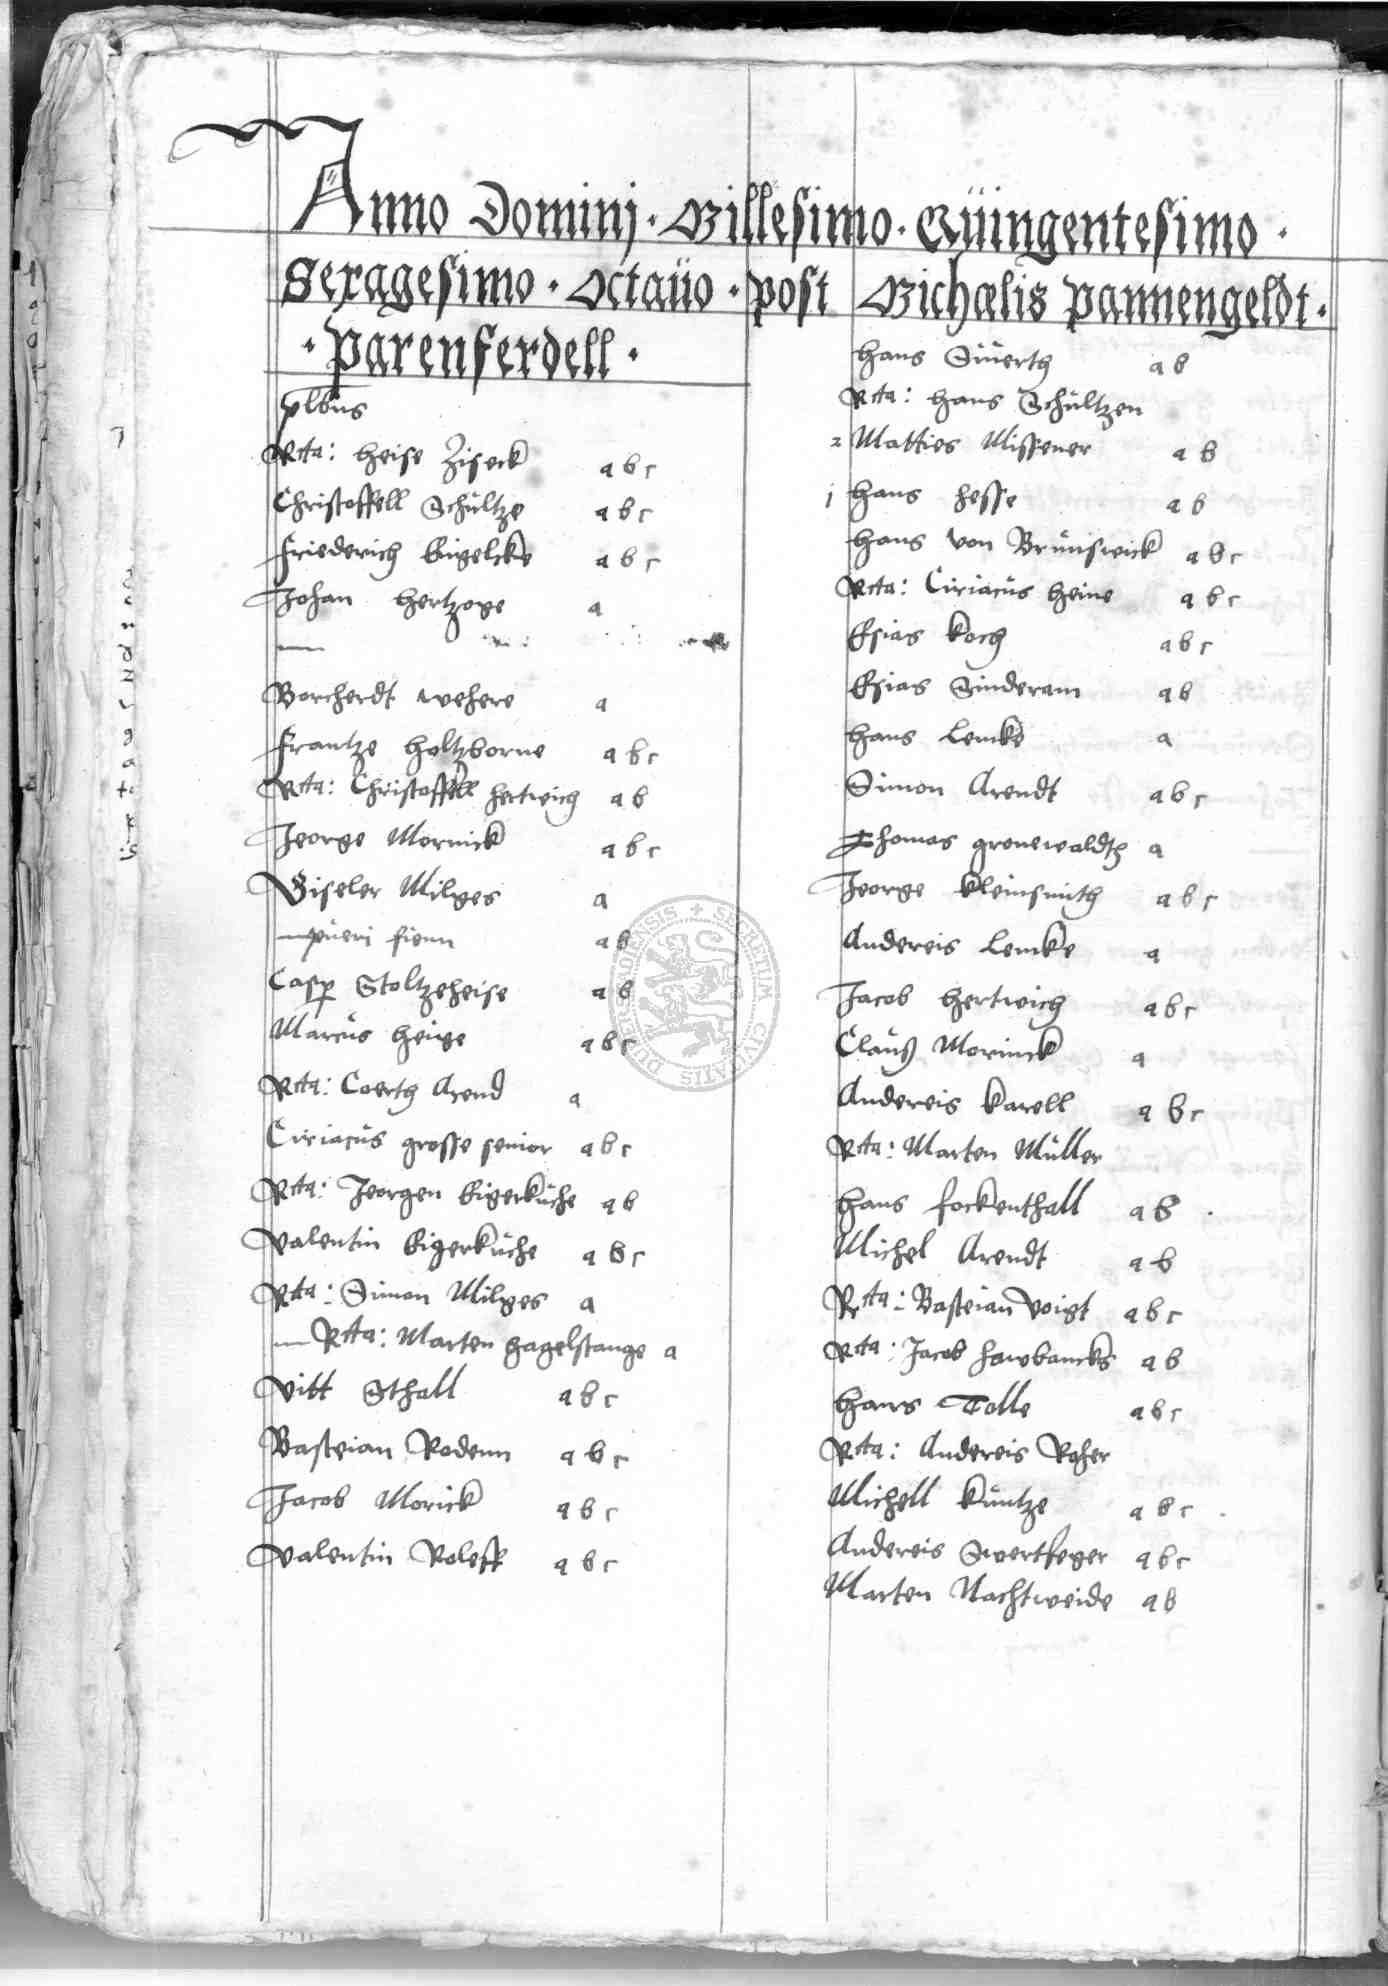 Anno Dominj · Millesimo · Quingentesimo ·
Sexagesimo · Octaüo · post Michælis Pannengeldt ·
· Parenferdell ·
plbüs
Rcta: Heise Ziseck a b c
Christoffell Schültze a b c
Friederich Engelcke a b c
Johan Hertzoge a
Borcherdt Wehere a
Frantze Holtzborne a b c
Rcta: Christoffell Hertwich a b
Jeorge Mornick a b c
Giseler Milges a
püeri a b
Casp Stoltzeheise a b
Marcüs Heige a b c
Rcta: Coerth Arend a
Ciriacüs grosse senior a b c
Rcta: Jeorgen Eigerküche a b
Valentin Eigerküche a b c
Rcta: Simon Milges a
Rcta: Marten Hagelstange a
Vitt Sthall a b c
Basteian Rodenn a b c
Jacob Morick a b c
Valentin Roleff a b c
Hans Süerth a b
Rcta: Hans Schültzen
2 Matties Missener a b
j Hans Hesse a b
Hans von Brünswick a b c
Rcta: Ciriacüs Heine a b c
Esias Koch a b c
Esias Sinderam a b
Hans Lemke a
Simon Arendt a b c
Thomas grenewaldt a
Jeorge Kleinsmith a b c
Andereis Lemke a
Jacob Hertwich a b c
Claüß Morinck a
Andereis Karell a b c
Rcta: Marten Müller
Hans Fockenthall a b
Michel Arendt a b
Rcta: Basteian Voigt a b c
Rcta: Jacob Hawbancks a b
Hans Tolle a b c
Rcta: Andereis Roher
Michell Küntze a b c
Andereis Swertfeger a b c
Marten Nachtweide a b
SECRETUM CIVITATIS DUDERSTADENSIS